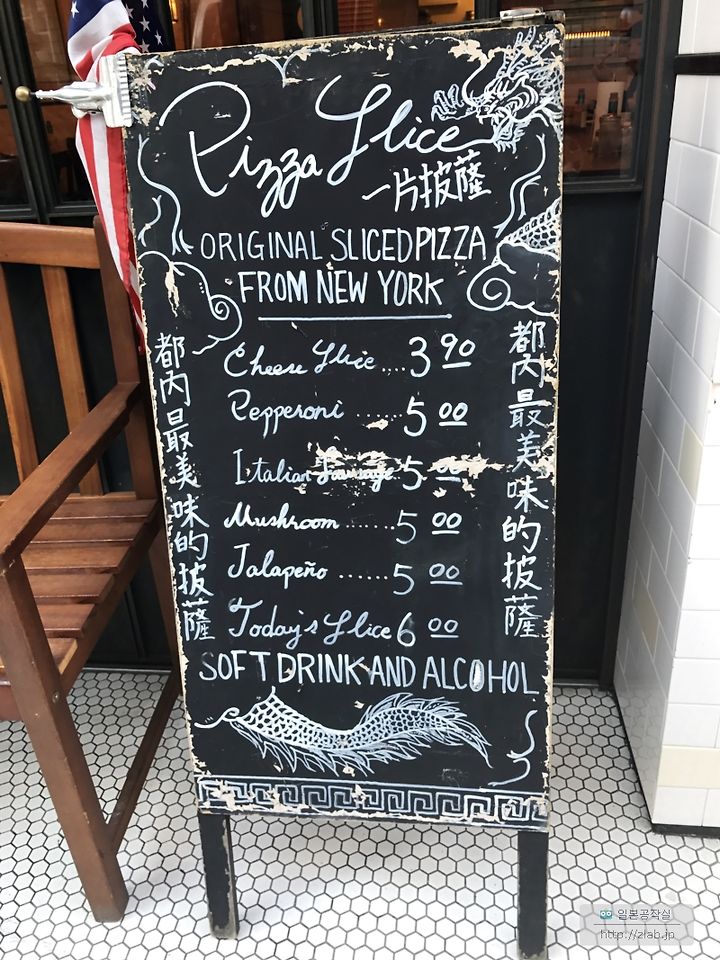 Pizza Slice
一片披薩
ORIGINAL SLICED PIZZA
FROM NEW YORK
都内最美味的披薩
都内最美味的披薩
Cheese Slice .... 3 90
Pepperoni ...... 5 00
Italian Sausage 5 00
Mushroom ...... 5 00
Jalapeño ...... 5 00
Today's Slice 6 00
SOFT DRINK AND ALCOHOL
일본공작실
http://zlab.jp